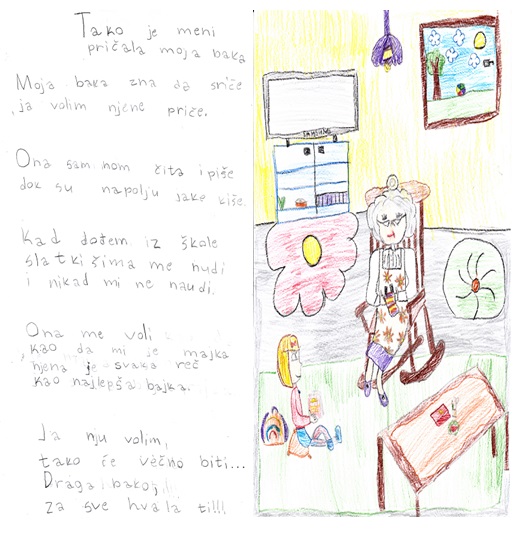 Tako je meni
pričala moja baka
Moja baka zna da sriče
ja volim njene priče.
Ona samnom čita i piše
dok su napolju jake kiše.
Kad dođem iz škole
slatkišima me nudi
i nikad mi ne naudi.
Ona me voli
kao da mi je majka
njena je svaka reč
kao najlepša bajka.
Ja nju volim,
tako će večno biti...
Draga bakoj!!
za sve hvala ti!!!
SAMSUNG